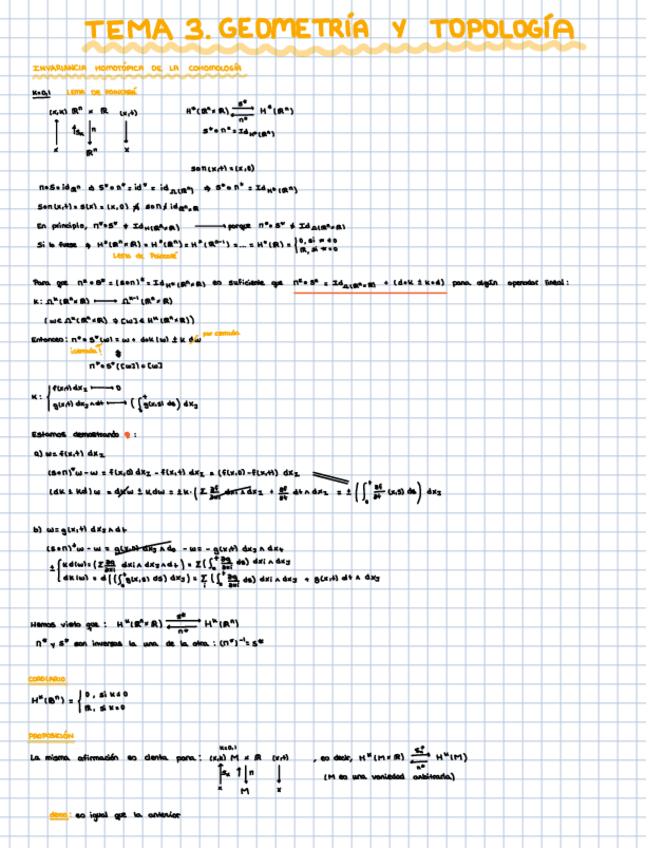 TEMA 3. GEOMETRÍA Y TOPOLOGÍA
INVARIANCIA HOMOTÓPICA DE LA COHOMOLOGÍA
K=0,1 LEMA DE POINCARÉ
(x,k) ℝⁿ × ℝ (x,t) H*(ℝⁿ×ℝ) ⇄ H*(ℝⁿ)
S*∘π* = Id
ℝⁿ
S∘π(x,t)=(x,0)
π∘S=id ⇒ S*∘π* = id* = id ⇒ S*∘π* = Id
S∘π(x,t) = S(x) = (x,0) ≠ S∘π ≠ id
En principio, π*∘S* ≠ Id → porque π*∘S* ≠ Id
Si lo fuese ⇒ H*(ℝⁿ×ℝ) = H*(ℝⁿ) = H*(ℝⁿ⁻¹) = ... = H*(ℝ) =
Lema de Poincaré
Para que π*∘S* = (S∘π)* = Id es suficiente que π*∘S* = Id + (d∘K ± K∘d) para algún operador lineal:
K: Ωᵏ(ℝⁿ×ℝ) → Ωᵏ⁻¹(ℝⁿ×ℝ)
(ω ∈ Ωᵏ(ℝⁿ×ℝ) ⇒ [ω] ∈ Hᵏ(ℝⁿ×ℝ))
Entonces: π*∘S*(ω) = ω + d∘K(ω) ± K dω por cerrada
π*∘S*([ω]) = [ω]
K: { f(x,t) dx_I → 0
g(x,t) dx_J∧dt → (∫₀ᵗ g(x,s) ds) dx_J
Estamos demostrando :
a) ω = f(x,t) dx_I
(S∘π)*ω − ω = f(x,0) dx_I − f(x,t) dx_I = (f(x,0)−f(x,t)) dx_I
(dK ± Kd)ω = dKω ± Kdω = ±K(Σ ∂f/∂xi dxi∧dx_I + ∂f/∂t dt∧dx_I) = ±(∫₀ᵗ ∂f/∂t (x,s) ds) dx_I
b) ω = g(x,t) dx_J∧dt
(S∘π)*ω − ω = g(x,0) dx_J∧d0 − ω = −g(x,t) dx_J∧dt
± { Kd(ω) = (Σ ∂g/∂xi dxi∧dx_J∧dt) = Σ(∫₀ᵗ ∂g/∂xi ds) dxi∧dx_J
dK(ω) = d((∫₀ᵗ g(x,s) ds) dx_J) = Σ(∫₀ᵗ ∂g/∂xi ds) dxi∧dx_J + g(x,t) dt∧dx_J
Hemos visto que: Hᵏ(ℝⁿ×ℝ) ⇄ Hᵏ(ℝⁿ)
π* y S* son inversas la una de la otra: (π*)⁻¹ = S*
COROLARIO
Hᵏ(ℝⁿ) = { 0, si k≠0
ℝ, si k=0
PROPOSICIÓN
K=0,1
La misma afirmación es cierta para: (x,k) M × ℝ (x,t) , es decir, Hᵏ(M×ℝ) ⇄ Hᵏ(M)
(M es una variedad arbitraria)
M
demo: es igual que la anterior